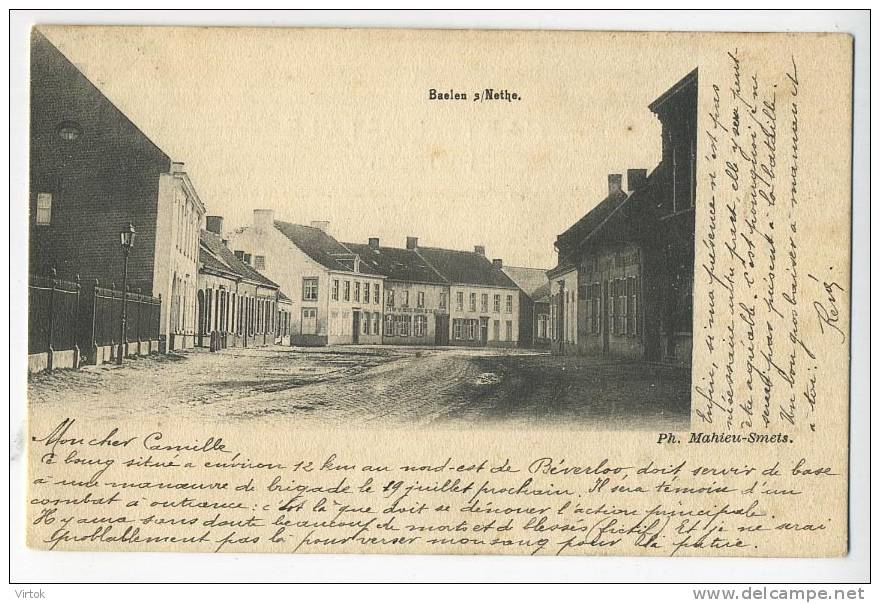 Baelen s/Nethe.
Ph. Mahieu-Smets.
Mon cher Camille
Ce bourg situé à environ 12 km au nord-est de Béverloo, doit servir de base
à une manœuvre de brigade le 19 juillet prochain. Il sera témoin d'un
combat à outrance : c'est là que doit se dénouer l'action principale.
Il y aura sans doute beaucoup de morts et de blessés (fictif) Et je ne serai
probablement pas là pour verser mon sang pour la patrie.
Enfin, si ma présence n'est pas
nécessaire autre part, elle y sera peut-
être aquelle. c'est pourquoi je ne
serai pas présent à la bataille.
Un bon gros baiser à maman et
à toi!
Virtok
www.delcampe.net